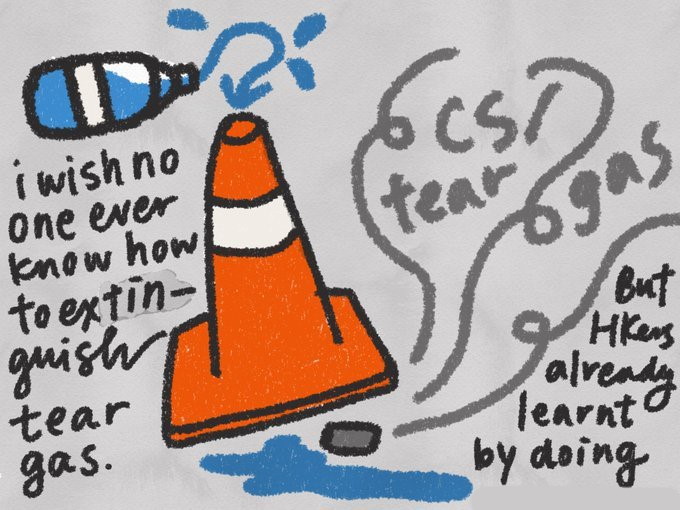 i wish no
one ever
know how
to extin-
guish
tear
gas.
CS/
tear gas
But
HKers
already
learnt
by doing